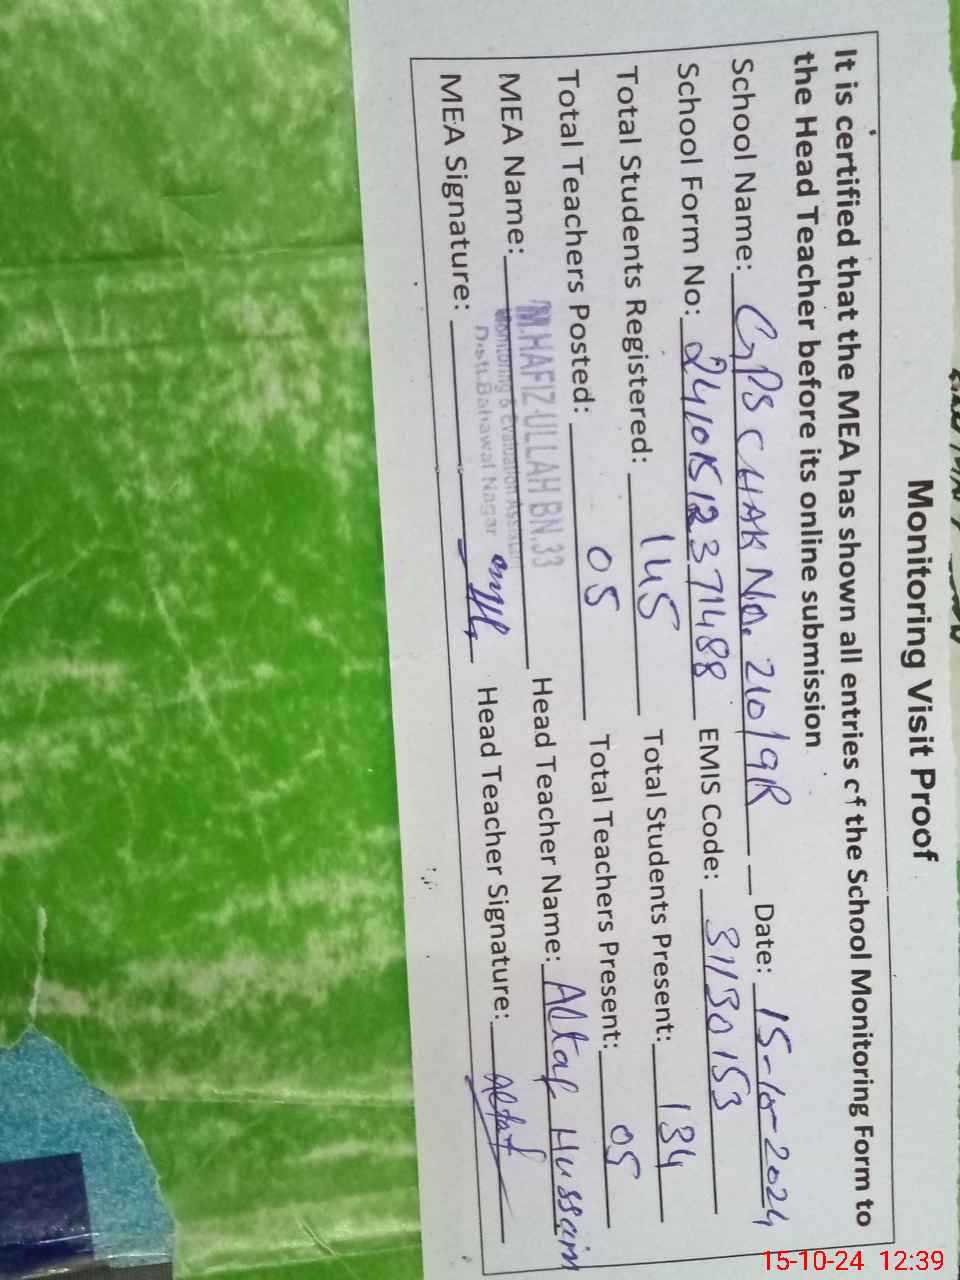 Monitoring Visit Proof
It is certified that the MEA has shown all entries of the School Monitoring Form to
the Head Teacher before its online submission
School Name: GPS CHAK No. 210/9R Date: 15-10-2024
School Form No: 24101512371488 EMIS Code: 31130153
Total Students Registered: 145 Total Students Present: 134
Total Teachers Posted: 05 Total Teachers Present: 05
MEA Name: M.HAFIZ-ULLAH BN.33 Head Teacher Name: Altaf Hussain
Monitoring & Evaluation Assistant
Distt. Bahawal Nagar
MEA Signature: Head Teacher Signature: Altaf
15-10-24 12:39